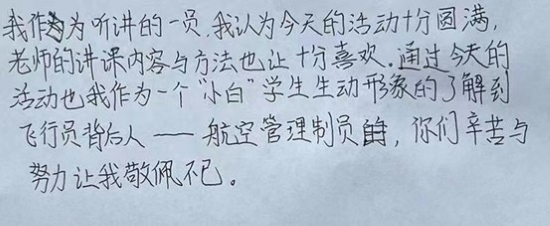 我作为为听讲的一员,我认为今天的活动十分圆满,
老师的讲课内容与方法也让十分喜欢.通过今天的
活动也我作为一个"小白"学生生动形象的了解到
飞行员背后人——航空管理制员，你们辛苦与
努力让我敬佩不已。